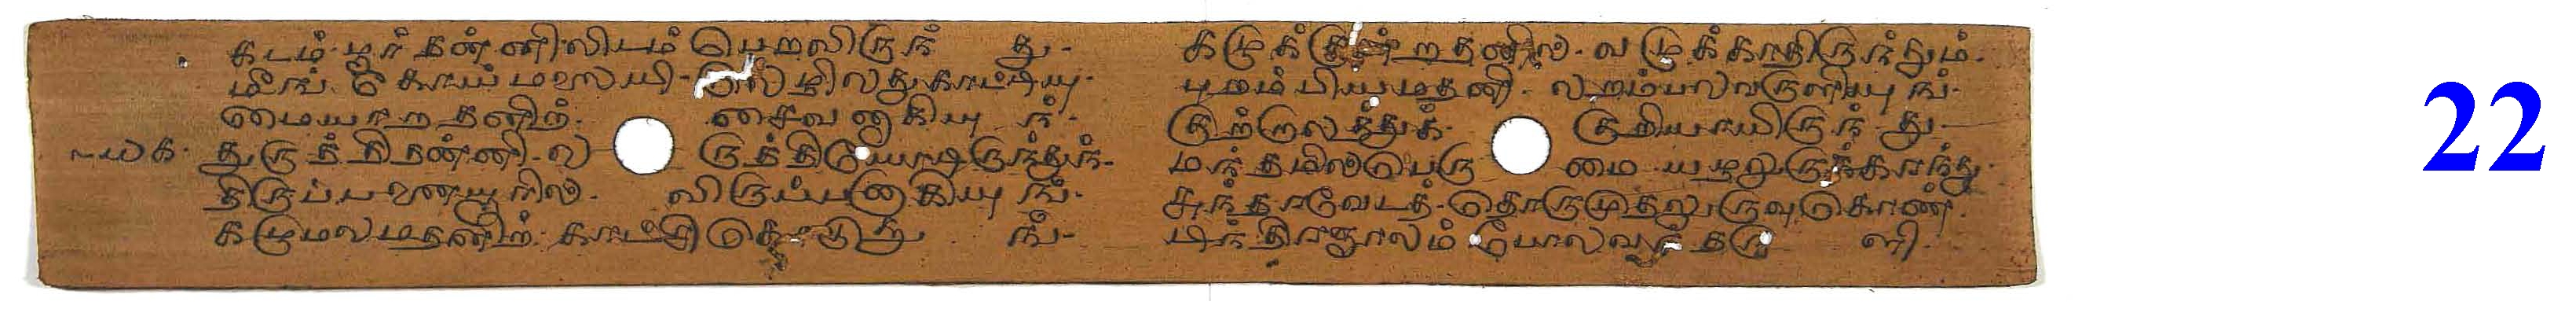 கடம்பூர்தன்னிலிடம் பெறவிருந் து-
மீங்கோய்மலையி-லெழிலதுகாட்டியு-
மையாறதனிற்- சைவனாகியுந்-
௰௧- துருத்திதன்னி-லருத்தியோடிருந்துந்-
திருப்பனையூரில்- விருப்பனாகியுங்-
கழுமலமதனிற்-காட்சிகொடுத்துங்-
கழுக்குன்றதனில்-வழுக்காதிருந்தும்-
புறம்பியமதனி-லறம்பலவருளியுங்-
குற்றாலத்துக்- குறியாயிருந்து-
மந்தமில்பெருமை யழலுருக்கரந்து-
சுந்தரவேடத்-தொருமுதலுருவுகொண்-
டிந்திரஞாலம்போலவந்தருளி-
22